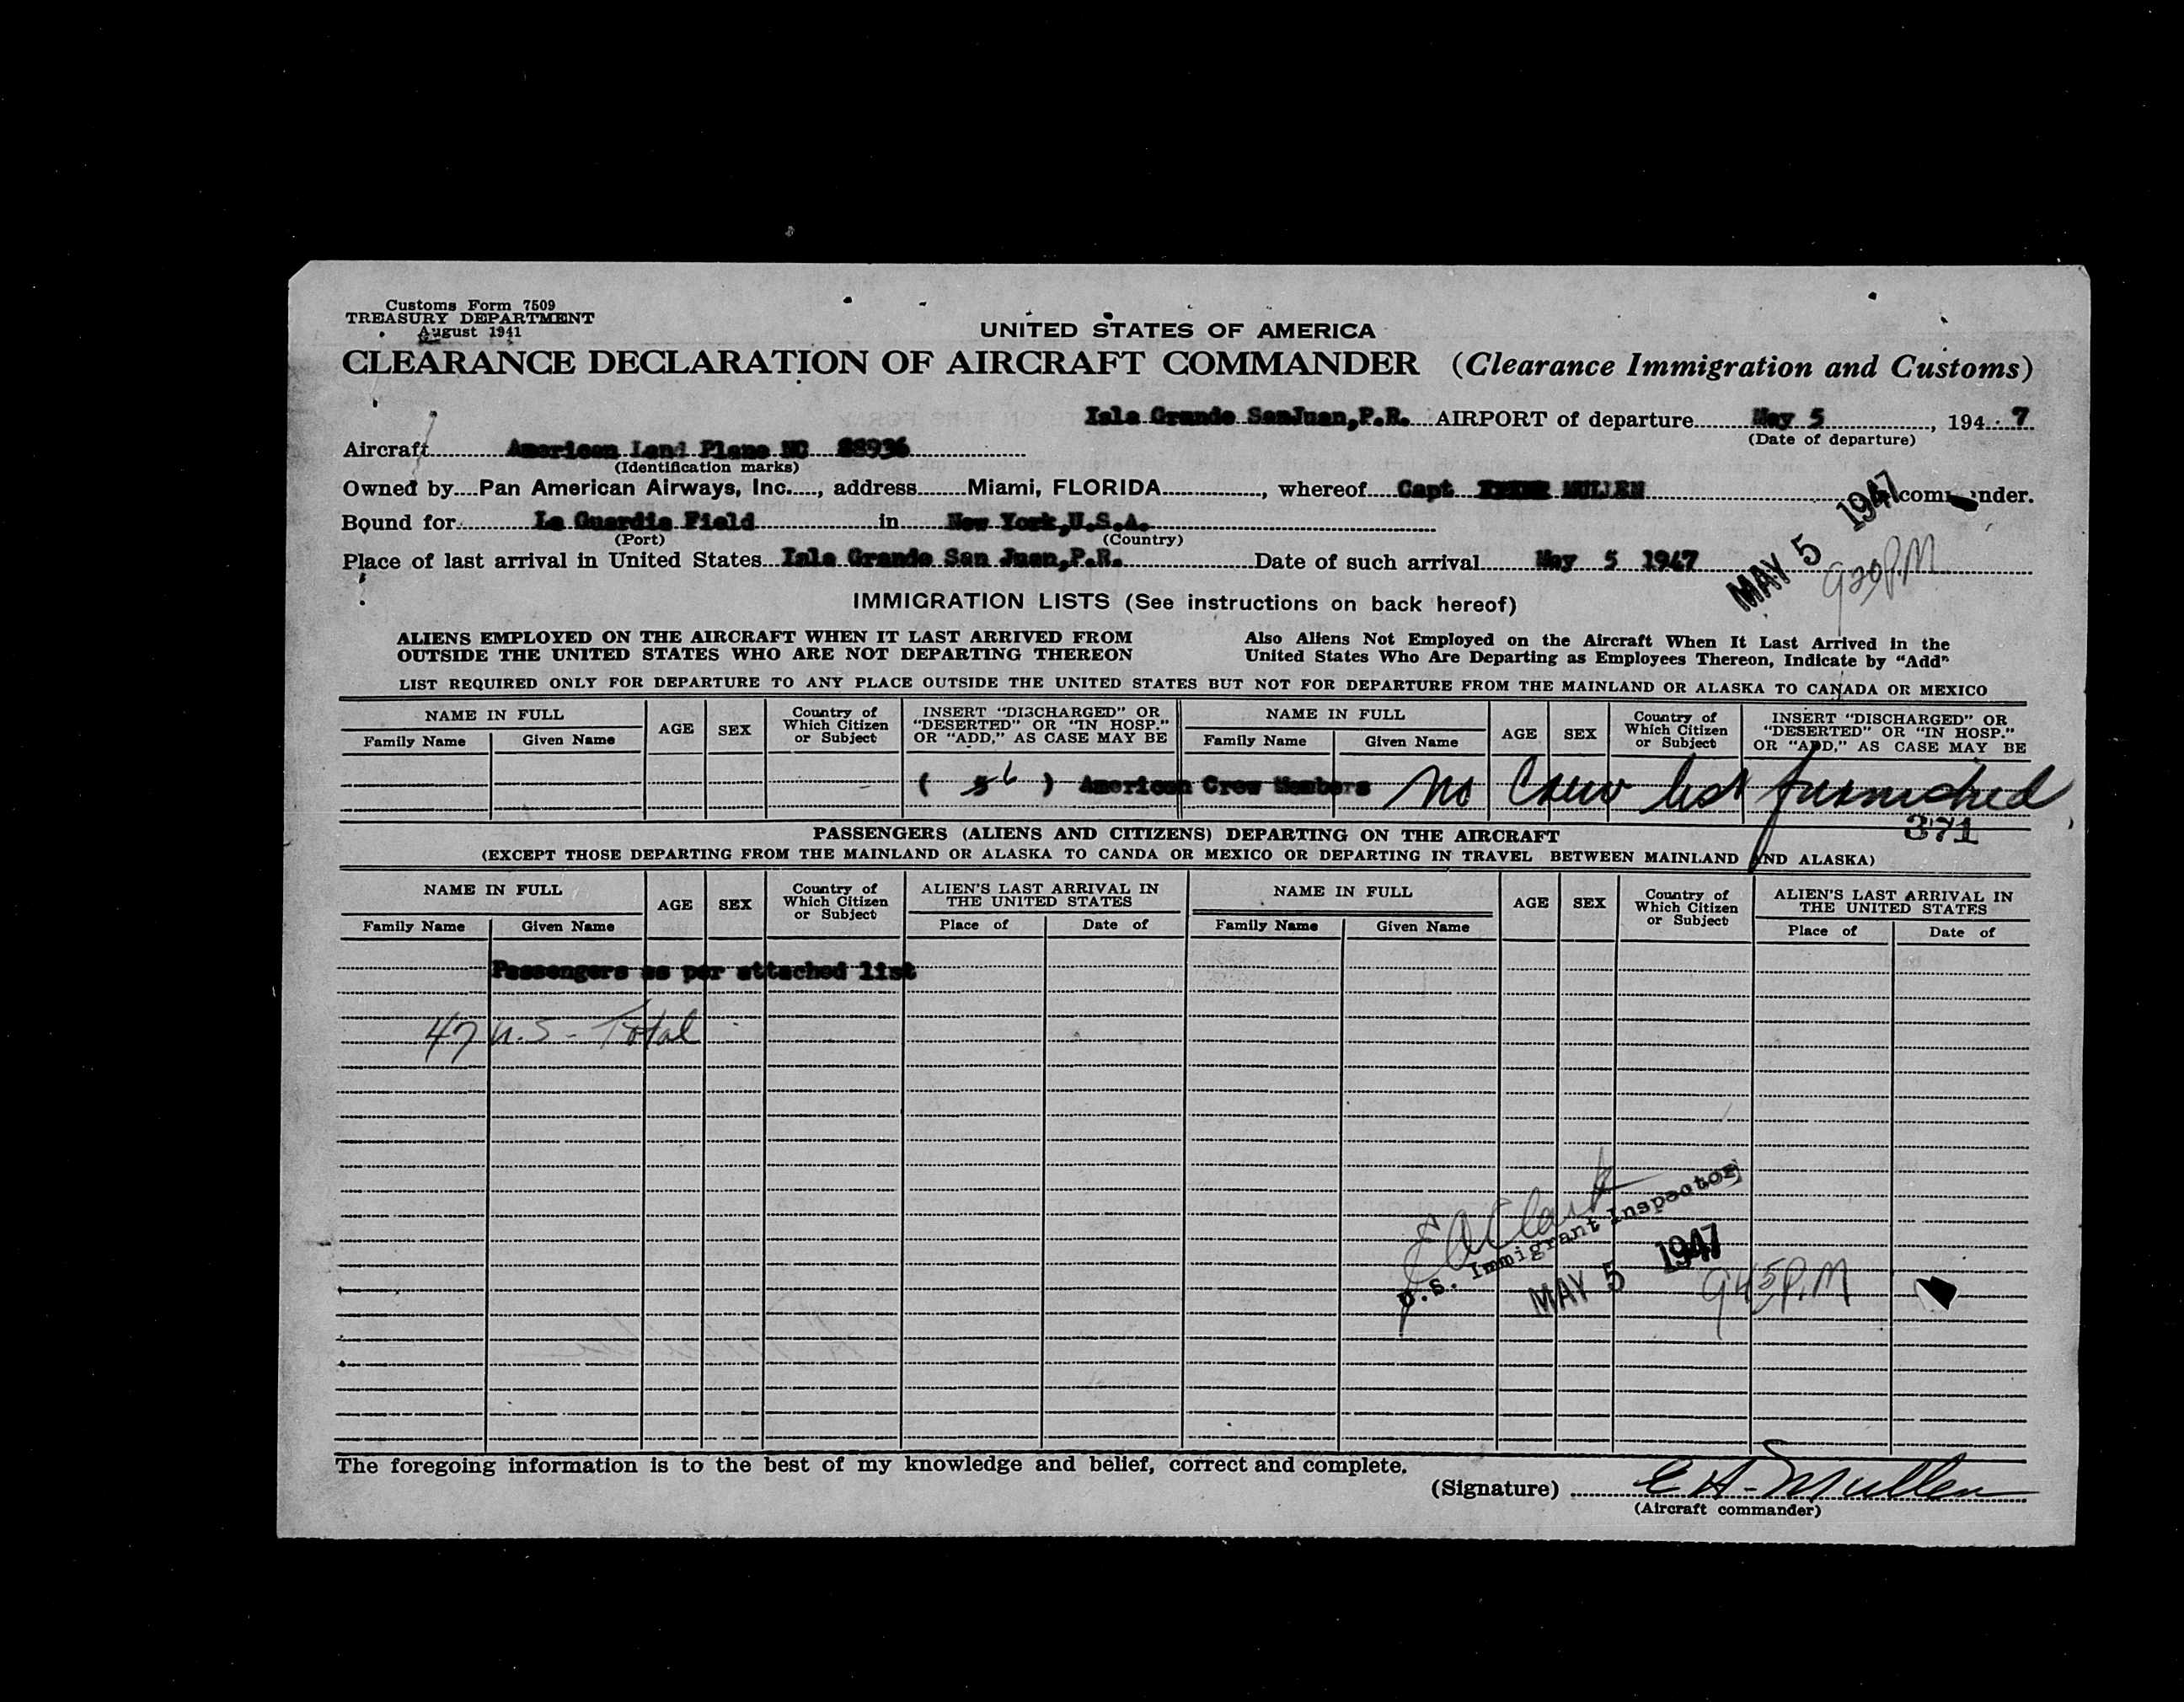 Customs Form 7509
TREASURY DEPARTMENT
August 1941
UNITED STATES OF AMERICA
CLEARANCE DECLARATION OF AIRCRAFT COMMANDER (Clearance Immigration and Customs)
Isla Grande SanJuan,P.R. AIRPORT of departure May 5, 194 7
(Date of departure)
Aircraft American Land Plane NC 88936
(Identification marks)
Owned by Pan American Airways, Inc., address Miami, FLORIDA, whereof Capt MULLEN commander.
Bound for La Guardia Field in New York,U.S.A.
(Port) (Country)
Place of last arrival in United States Isla Grande San Juan,P.R. Date of such arrival May 5 1947
MAY 5 1947
930 P.M
IMMIGRATION LISTS (See instructions on back hereof)
ALIENS EMPLOYED ON THE AIRCRAFT WHEN IT LAST ARRIVED FROM
OUTSIDE THE UNITED STATES WHO ARE NOT DEPARTING THEREON
Also Aliens Not Employed on the Aircraft When It Last Arrived in the
United States Who Are Departing as Employees Thereon, Indicate by "Add"
LIST REQUIRED ONLY FOR DEPARTURE TO ANY PLACE OUTSIDE THE UNITED STATES BUT NOT FOR DEPARTURE FROM THE MAINLAND OR ALASKA TO CANADA OR MEXICO
NAME IN FULL
Family Name Given Name
AGE SEX
Country of
Which Citizen
or Subject
INSERT "DISCHARGED" OR
"DESERTED" OR "IN HOSP."
OR "ADD," AS CASE MAY BE
NAME IN FULL
Family Name Given Name
AGE SEX
Country of
Which Citizen
or Subject
INSERT "DISCHARGED" OR
"DESERTED" OR "IN HOSP."
OR "ADD," AS CASE MAY BE
( 5 6 ) American Crew Members No Crew list furnished
371
PASSENGERS (ALIENS AND CITIZENS) DEPARTING ON THE AIRCRAFT
(EXCEPT THOSE DEPARTING FROM THE MAINLAND OR ALASKA TO CANDA OR MEXICO OR DEPARTING IN TRAVEL BETWEEN MAINLAND AND ALASKA)
NAME IN FULL
Family Name Given Name
AGE SEX
Country of
Which Citizen
or Subject
ALIEN'S LAST ARRIVAL IN
THE UNITED STATES
Place of Date of
NAME IN FULL
Family Name Given Name
AGE SEX
Country of
Which Citizen
or Subject
ALIEN'S LAST ARRIVAL IN
THE UNITED STATES
Place of Date of
Passengers as per attached list
47 U.S - Total
E A Clark
U.S. Immigrant Inspector
MAY 5 1947
945 P.M
The foregoing information is to the best of my knowledge and belief, correct and complete.
(Signature) E H Mullen
(Aircraft commander)